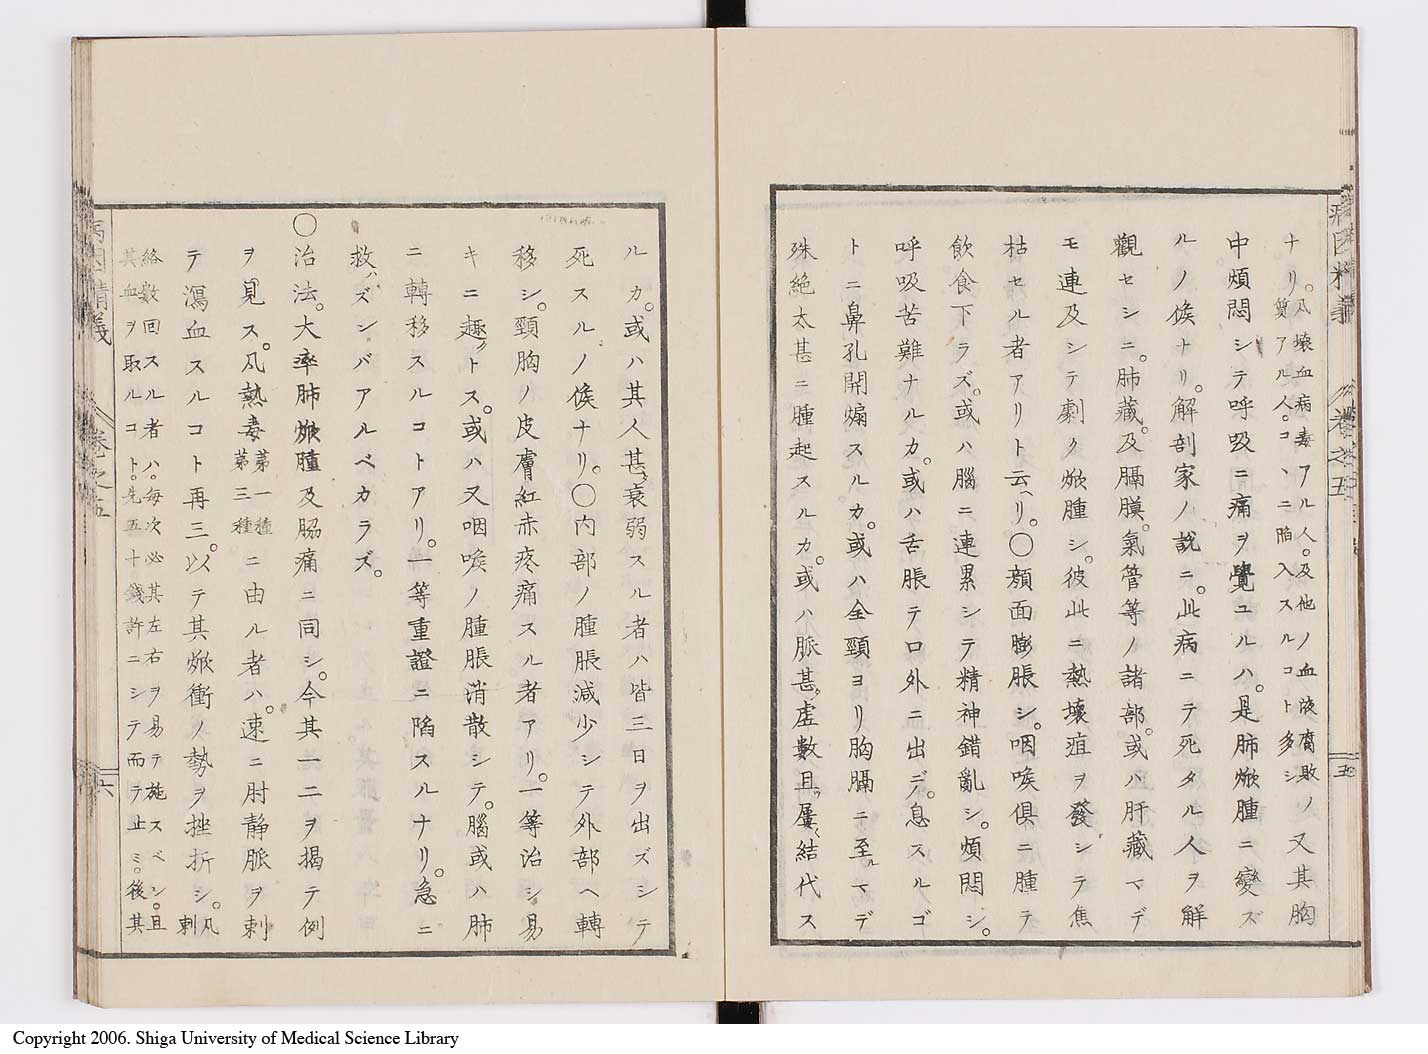 病因精義
卷之五
五
ナリ。凡壞血病毒アル人。及他ノ血液腐敗ノ
質アル人。コヽニ陷入スルコト多シ
又其胸
中煩悶シテ呼吸ニ痛ヲ覺ユルハ。是肺焮腫ニ變ズ
ルノ候ナリ。解剖家ノ說ニ。此病ニテ死タル人ヲ解
觀セシニ。肺藏。及膈膜。氣管等ノ諸部。或ハ肝藏マデ
モ連及シテ劇ク焮腫シ。彼此ニ熱壞疽ヲ發シテ焦
枯セル者アリト云ヘリ。〇顏面膨脹シ。咽喉俱ニ腫テ
飲食下ラズ。或ハ腦ニ連累シテ精神錯亂シ。煩悶シ。
呼吸苦難ナルカ。或ハ舌脹テ口外ニ出デ。息スルゴ
トニ鼻孔開煽スルカ。或ハ全頸ヨリ胸膈ニ至ルマデ
殊絶太甚ニ腫起スルカ。或ハ脈甚ダ虛數且ツ屢〻結代ス
ルカ。或ハ其人甚ダ衰弱スル者ハ皆三日ヲ出ズシテ
死スルノ候ナリ。〇內部ノ腫脹減少シテ外部ヘ轉
移シ。頸胸ノ皮膚紅赤疼痛スル者アリ。一等治シ易
キニ趣クトス。或ハ又咽喉ノ腫脹消散シテ。腦或ハ肺
ニ轉移スルコトアリ。一等重證ニ陷スルナリ。急ニ
救ハズンバアルベカラズ。
〇治法。大率肺焮腫及脇痛ニ同シ。今其一二ヲ揭テ例
ヲ見ス。凡熱毒第一種
第三種ニ由ル者ハ。速ニ肘靜脈ヲ刺
テ瀉血スルコト再三。以テ其焮衝ノ勢ヲ挫折シ。凡
刺
絡數回スル者ハ。每次必其左右ヲ易テ施スベシ。且
其血ヲ取ルコト。先五十錢許ニシテ而テ止ミ。後其
病因精義
卷之五
六
Copyright 2006. Shiga University of Medical Science Library